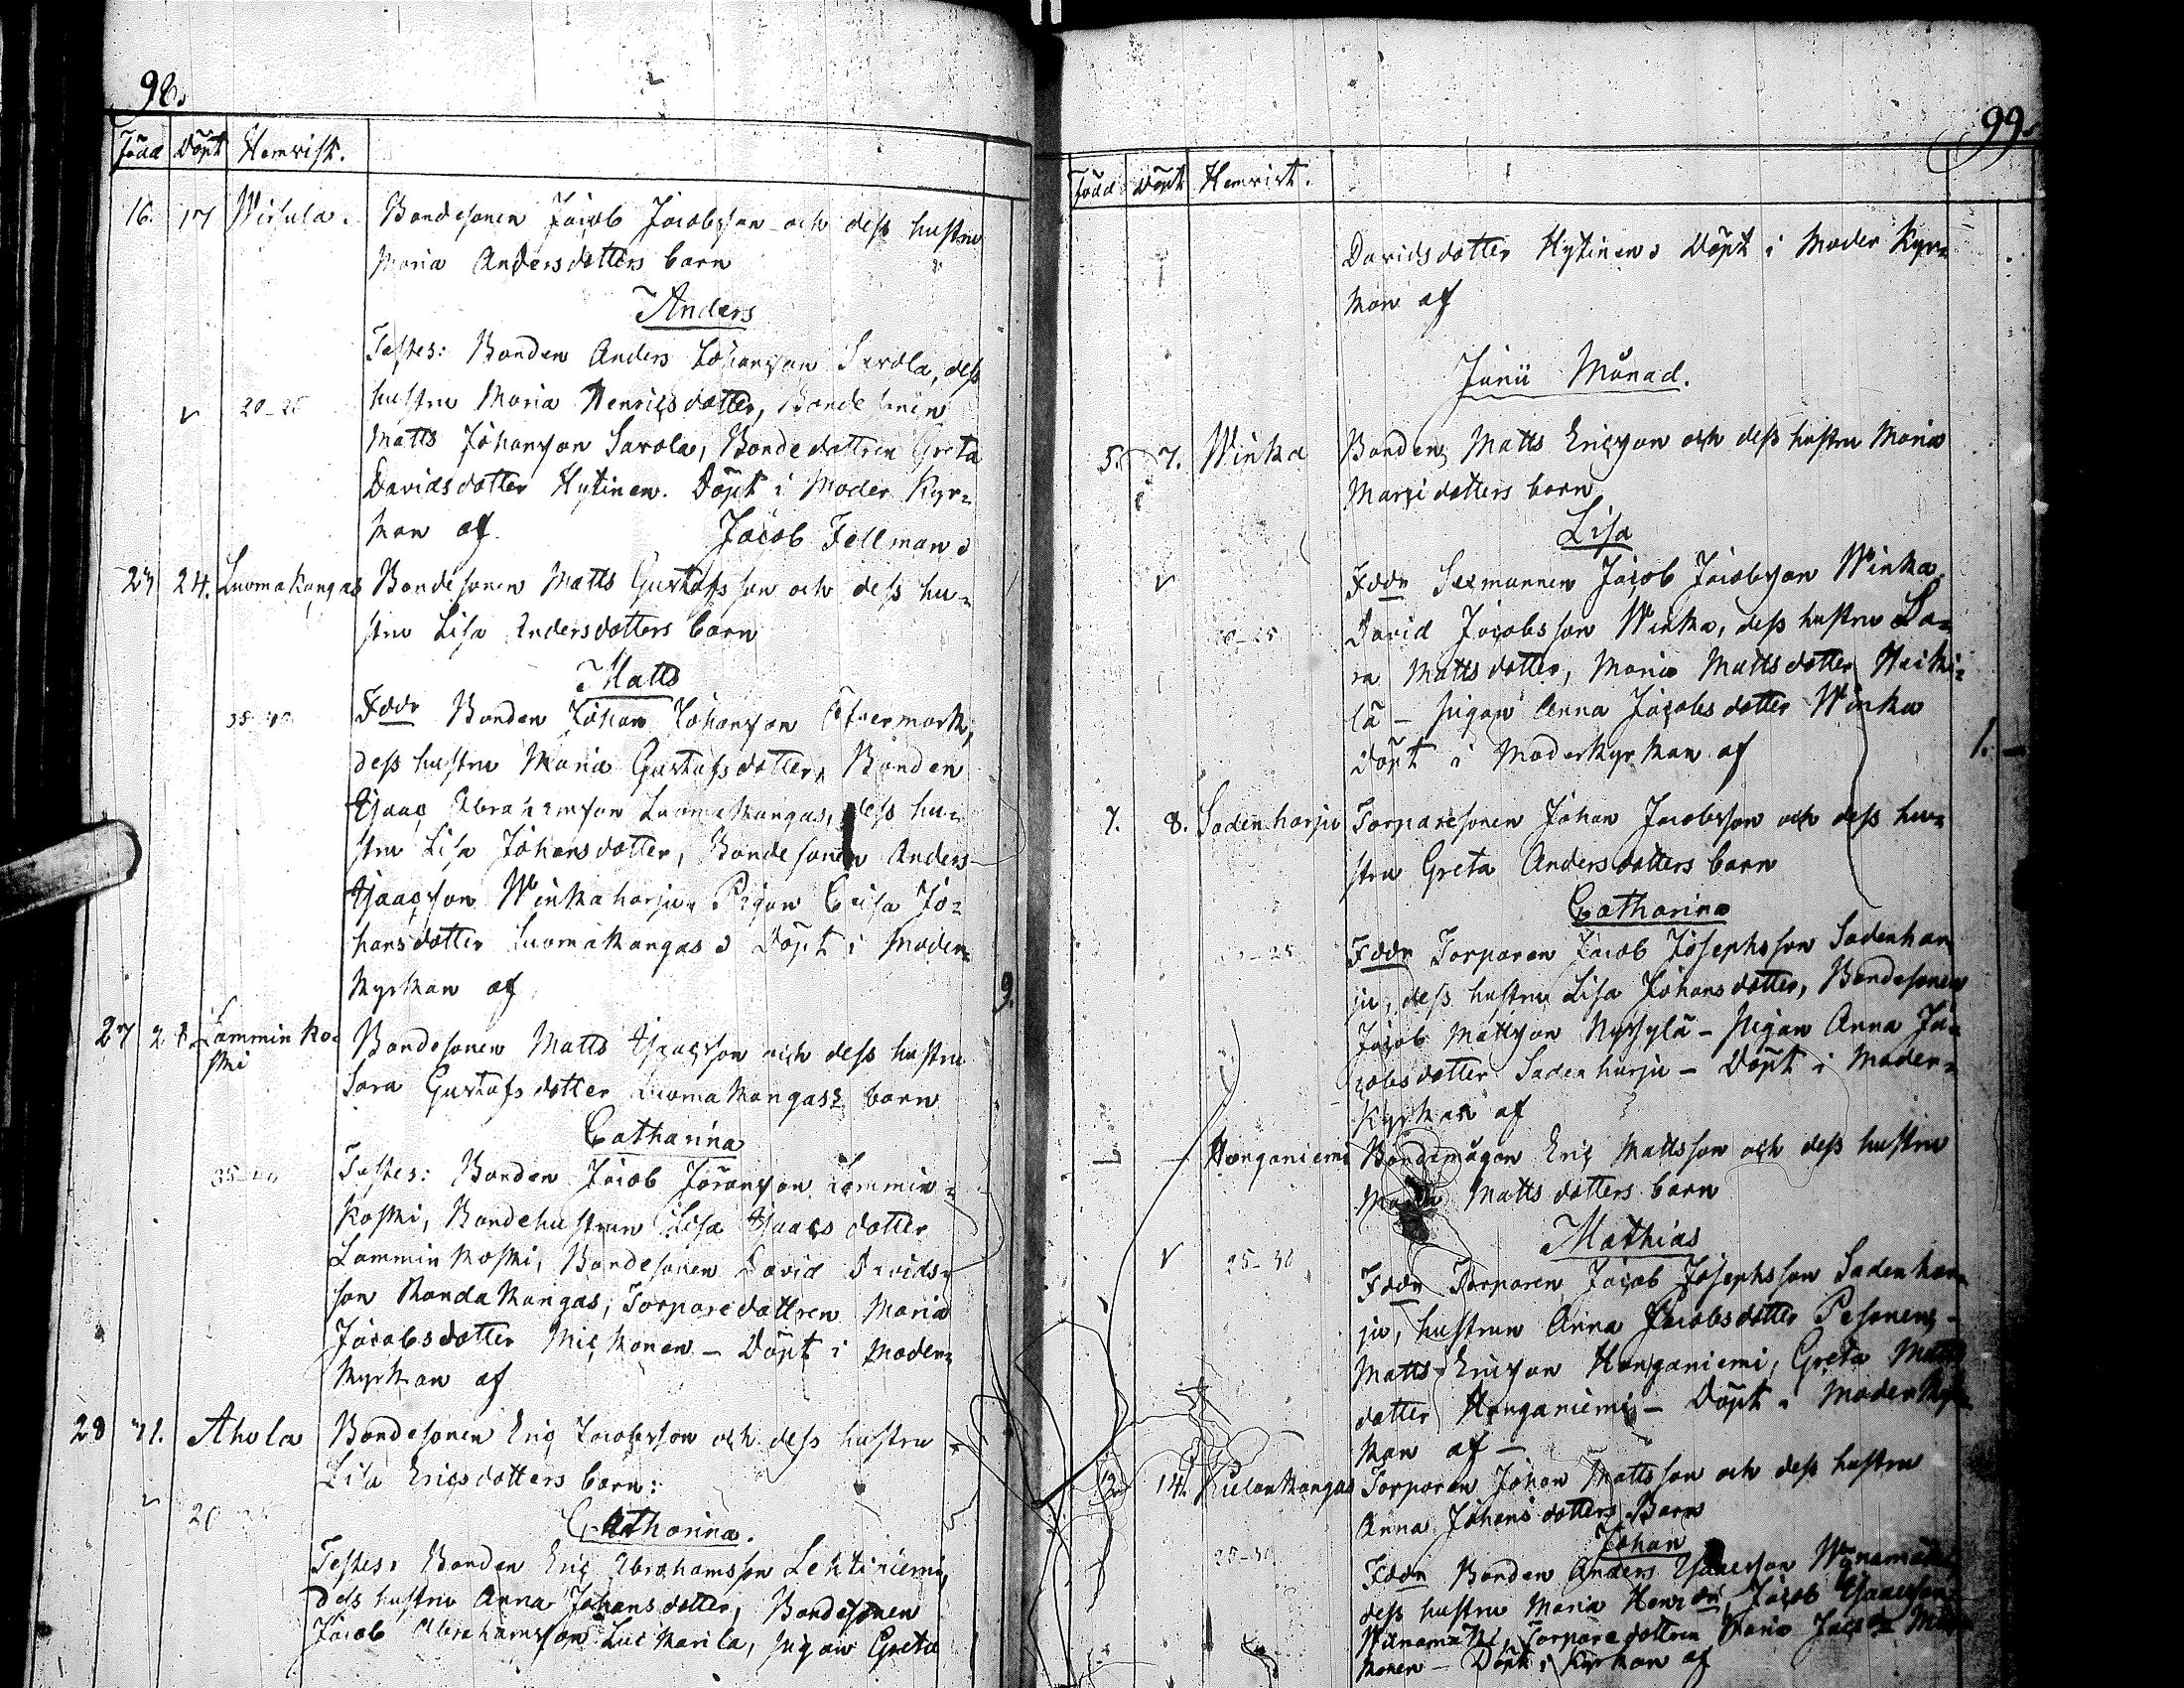 98.
Född Döpt Hemvist.
16. 17 Wirsula. Bondesonen Jacob Jacobsson och dess hustru
Maria Andersdotters barn
Anders
Testes: Bonden Anders Johansson Savola, dess
20-25 hustru Maria Henricsdotter, Bondesonen
Matts Johansson Savola, Bondedottren Greta
Davidsdotter Hytinen. Döpt i Moder Kyr=
kan af Jacob Fellman
24. Luomakangas Bondesonen Matts Gustafsson och dess hu=
stru Lisa Andersdotters barn
Matts
35-40 Fddr Bonden Johan Johansson Öfvermark,
dess hustru Maria Gustafsdotter, Bonden
Isaac Abrahamsson Luomakangas, dess hu=
stru Lisa Johansdotter, Bondesonen Anders
Isaacsson Winkaharju, Pigan Caisa Jo=
hansdotter Luomakangas Döpt i Moder=
kyrkan af
9.
27 Lamminko= Bondesonen Matts Isaacsson och dess hustru
ski Sara Gustafsdotter Luomakangas barn
Catharina
35-40 Testes: Bonden Jacob Göransson Lammin=
koski, Bondehustrun Lisa Isaacsdotter
Lamminkoski, Bondesonen David Davids=
son Kandakangas, Torparedottren Maria
Jacobsdotter Mickonen - Döpt i Moder=
kyrkan af
28 31. Ahola Bondesonen Eric Jacobsson och dess hustru
Lisa Ericsdotters barn:
20 Catharina.
Testes: Bonden Eric Abrahamsson Lehtiniemi,
dess hustru Anna Johansdotter, Bondesonen
Jacob Abrahamsson Luckarila, pigan Greta
99.
Född Döpt Hemvist.
Davidsdotter Hytinen Döpt i Moder Kyr=
kan af
Junii Månad.
5. 7. Winka Bonden Matts Ericsson och dess hustru Maria
Marcidotters barn
Lisa
Fddr Sexmannen Jacob Jacobsson Winka
20-25 David Jacobsson Winka, dess hustru Sa=
ra Mattsdotter, Maria Mattsdotter Heiki=
lä - pigan Anna Jacobsdotter Winka
Döpt i Moderkyrkan af
1. -
7. 8. Sadenharju Torparesonen Johan Jacobsson och dess hu=
stru Greta Andersdotters barn
Catharina
Fddr Torparen Jacob Josephsson Sadenhar=
ju, dess hustru Lisa Johansdotter, Bondesonen
Jacob Mattsson Nyssylä - pigan Anna Ja=
cobsdotter Sadenharju - Döpt i Moder=
kyrkan af
Hanganiemi Bondemågen Eric Mattsson och dess hustru
Maria Mattsdotters barn
Mathias
25-30 Fddr Torparen Jacob Josephsson Sadenhar=
ju, hustrun Anna Jacobsdotter Pesonen,
Matts Ericsson Hanganiemi, Greta Matts
dotter Hanganiemi - Döpt i Moderkyr=
kan af -
12. 14. Kielonkangas Torparen Johan Mattsson och dess hustru
Anna Johansdotters Barn
Johan
25-30 Fddr Bonden Anders Isaacsson Winamäki,
dess hustru Maria Henricdr, Jacob Isaacsson
Winamäki, Torparedottren Maria
konen - Döpt i Kyrkan af